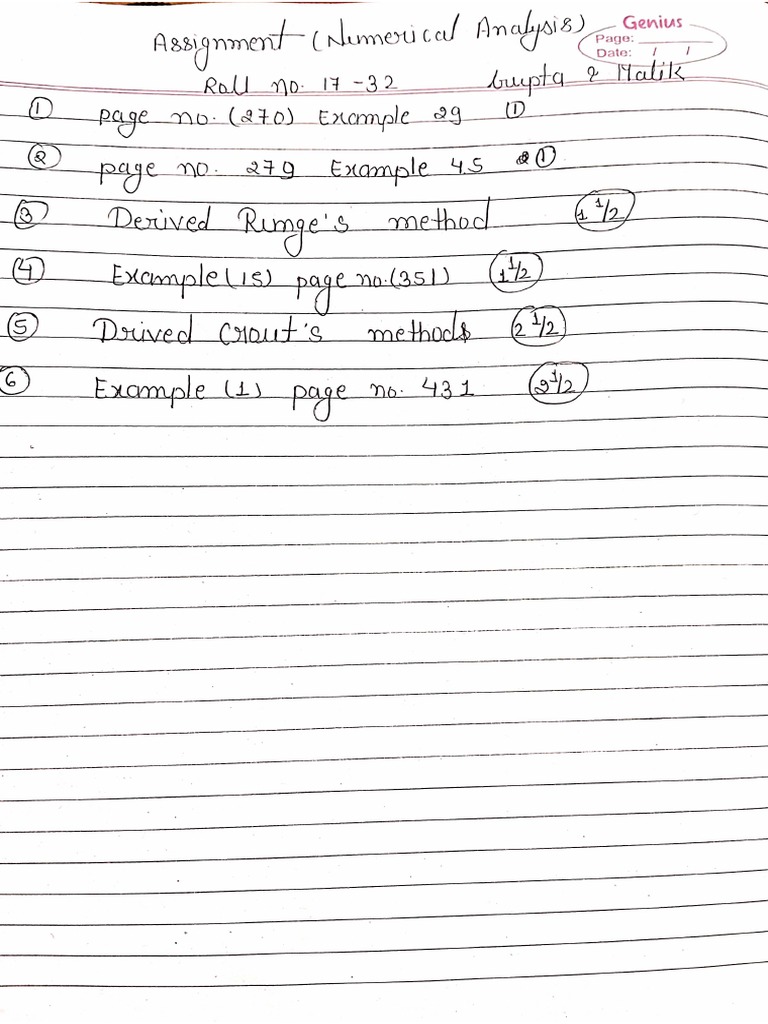 Assignment (Numerical Analysis)
Genius
Page:
Date: / /
Roll no. 17-32 Gupta & Malik
① page no. (270) Example 29 ①
② page no. 279 Example 45 ①
③ Derived Runge's method 1 1/2
④ Example (15) page no. (351) 1 1/2
⑤ Drived Crout's methods 2 1/2
⑥ Example (1) page no. 431 2 1/2